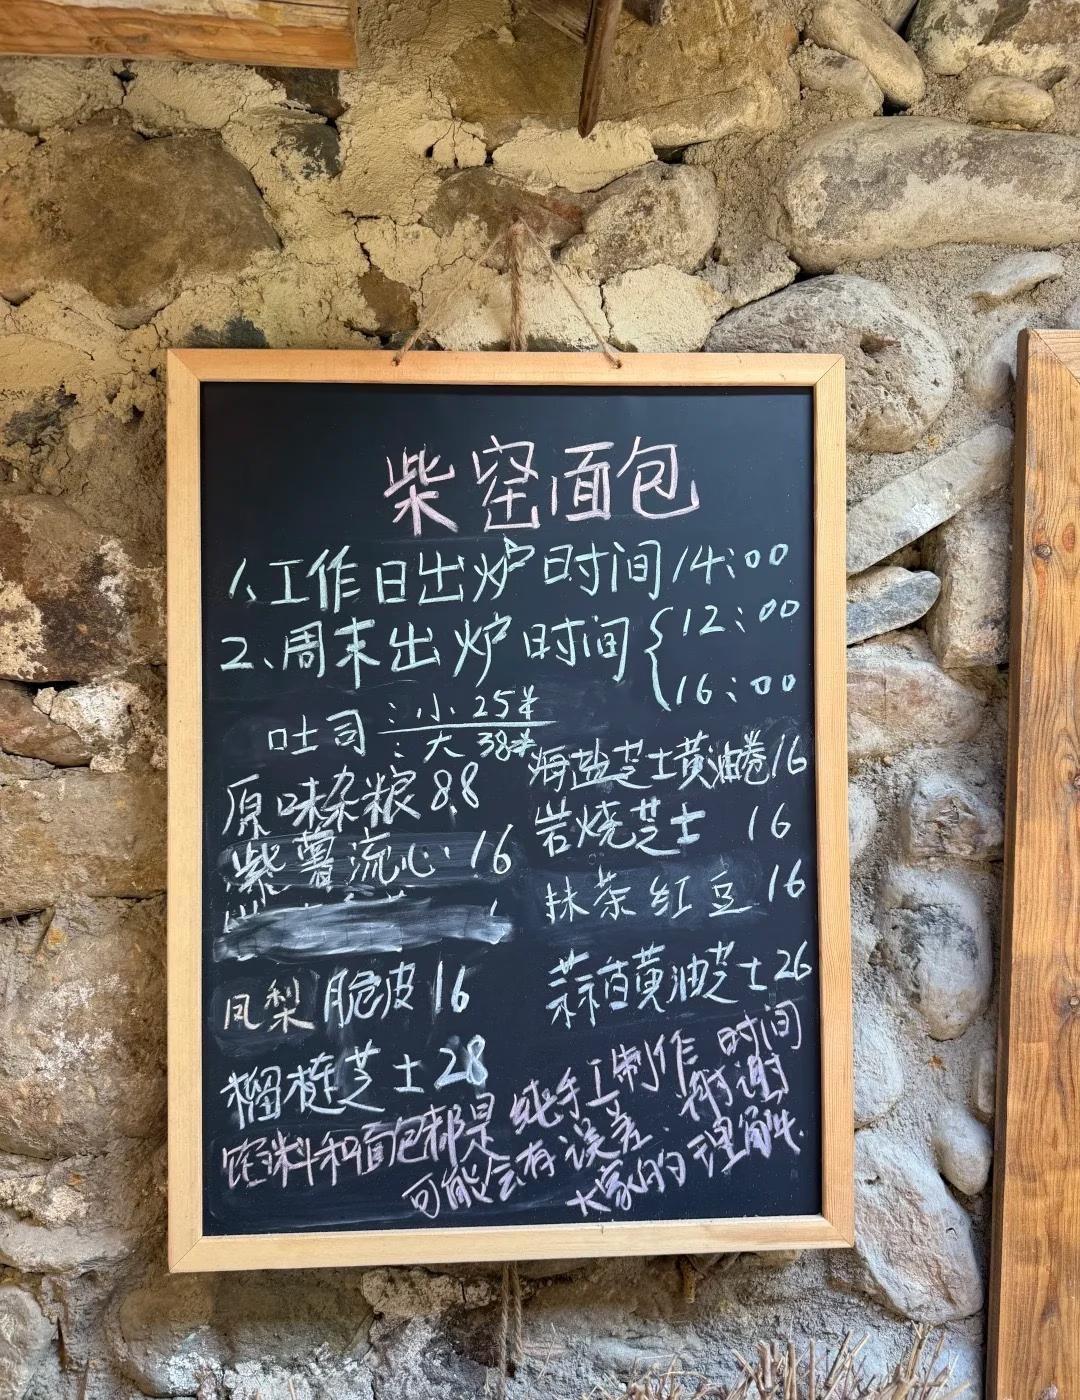 柴窑面包
1、工作日出炉时间14:00
2、周末出炉时间{12:00
16:00
吐司:小 25¥
:大 38¥
原味杂粮 88
海盐芝士黄油卷 16
紫薯流心 16
岩烧芝士 16
抹茶红豆 16
凤梨脆皮 16
蒜苔黄油芝士 26
榴梿芝士 28
馅料和面包都是纯手工制作 时间
可能会有误差. 谢谢
大家的理解.